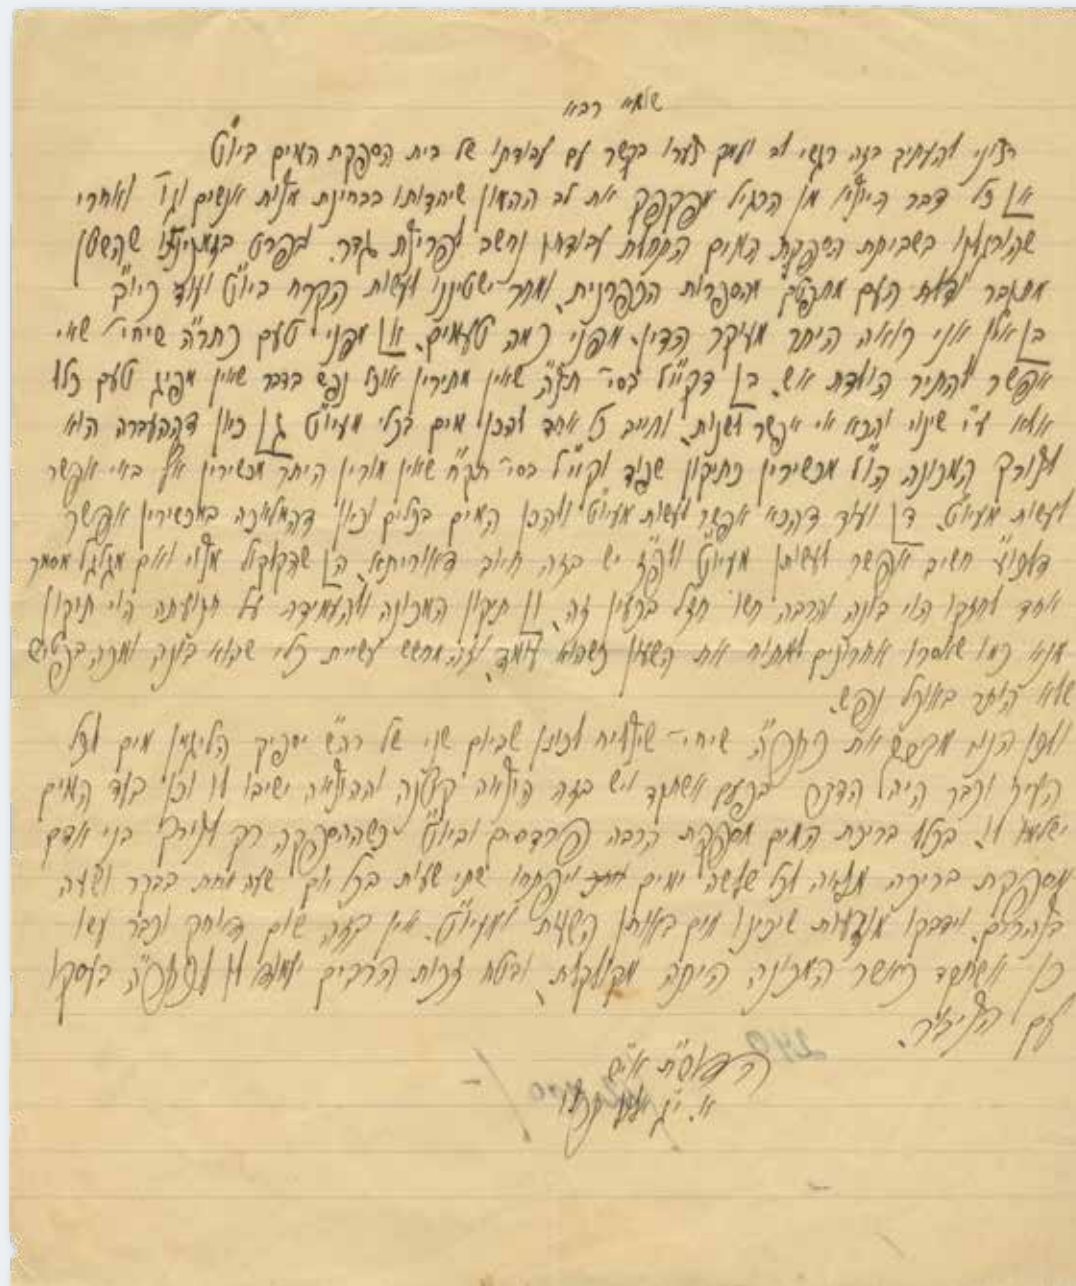 שלמא רבא
רצוני להעתיק בזה רגשי לב ולמך צערו בקשר עם עבודתו של בית הספקת המים ביו"ט
א] כל דבר היוצא מן הרגיל מפקפק את לב ההמון שיהדותו בבחינת מצות אנשים וגו' ואחרי
שהורגלנו בשביתת הספקת המים התחלת עבודתן נחשב לפריצת גדר. ובפרט בזמנינו שהשטן
מתגבר ודעת העם מהספרות הכפרנית, ומחר ישטיננו לעשות הקרח ביו"ט ועוד כיו"ב
ב] אין אני רואה היתר מעיקר הדין, מפני כמה טעמים. א] מפני טעם כתר"ה שיחי' שאי
אפשר להתיר הולדת אש. ב] דקיי"ל בסי' תצ"ה שאין מתירין אוכל נפש בדבר שאין מפיג טעם כלו
אלא ע"י שינוי והכא אי אפשר לשנות, וחייב כל אחד להכין מים בכלי מעיו"ט ג] כיון דההעברה הוא
לצורך המכונה הו"ל מכשירין כתיקון שפוד וקיי"ל בסי' תק"ח שאין מורין היתר מכשירין אף באי אפשר
לעשות מעיו"ט. ד] ועוד דהכא אפשר לעשות מעיו"ט ולהכין המים בכלים וכיון דהמלאכה במכשירין אפשר
חשיב אפשר לעשותן מעיו"ט ולפ"ז יש בזה חיוב דאורייתא. ה] שדקלקול מצוי ואם מגלגל מסמר
אחד לחזקו הוי בונה והרבה חששו חז"ל בכעין זה. ו] תיקון המכונה ולהעמידה על תנועתה הוי תיקון
מנא כמו שאסרו אחרונים למתוח את השעון כשהוא עומד, וזה מחשש עשיית כלי שהוא בונה ומכה בפטיש
שלא הותר באוכל נפש.
ולכן הנני מבקש את כתר"ה שיחי' שיצליח לכונן שביום שני של רה"ש יספיק מים לכל
העיר וכבר היה הדבר בפעם אשתקד ויש בזה הוצאה קטנה וההוצאה ישיבו לו וכפי כבוד המים
ישלמו לו. בריכת המים מספקת הרבה פרדסים וביו"ט כשההספקה רק לצורך בני אדם
מספקת בריכה מלאה לכל שלשה ימים ויפתחו שתי שעות בכל יום, שעה אחת בבקר ושעה
בצהרים. וידבקו מודעות שיכינו מים באותן השעות ומעיו"ט. אין בזה שום דוחק וכבר עשו
כן אשתקד כאשר המכונה היתה מקולקלת, וגדולה זכות הרבים יעמוד לו לכתר"ה בעסקו
עם הציבור.
הדו"ש
א. י.